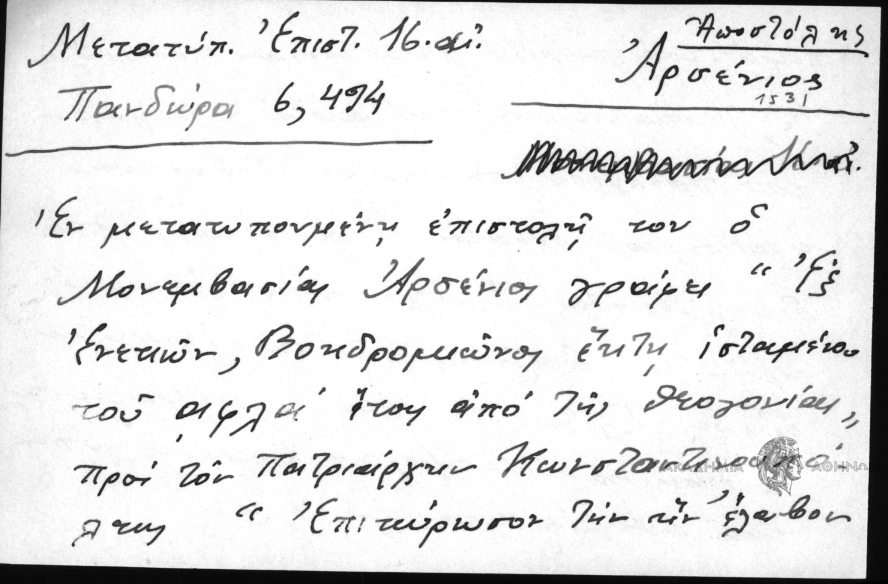 Μετατύπ. Ἐπιστ. 16. αἰ.
Πανδώρα 6, 494
Ἀποστόλης
Ἀρσένιος
1531
Ἐν μετατυπουμένῃ ἐπιστολῇ του ὁ
Μονεμβασίας Ἀρσένιος γράφει “Ἐξ
Ἐνετιῶν, Βοηδρομιῶνος ἕκτῃ ἱσταμένου
τοῦ ͵αφλα΄ ἔτους ἀπό τῆς θεογονίας„
πρός τόν Πατριάρχην Κωνσταντινουπό-
λεως “Ἐπικύρωσον τήν ἥν ἔλαβον
ΑΚΑΔΗΜΙΑ ΑΘΗΝΩΝ